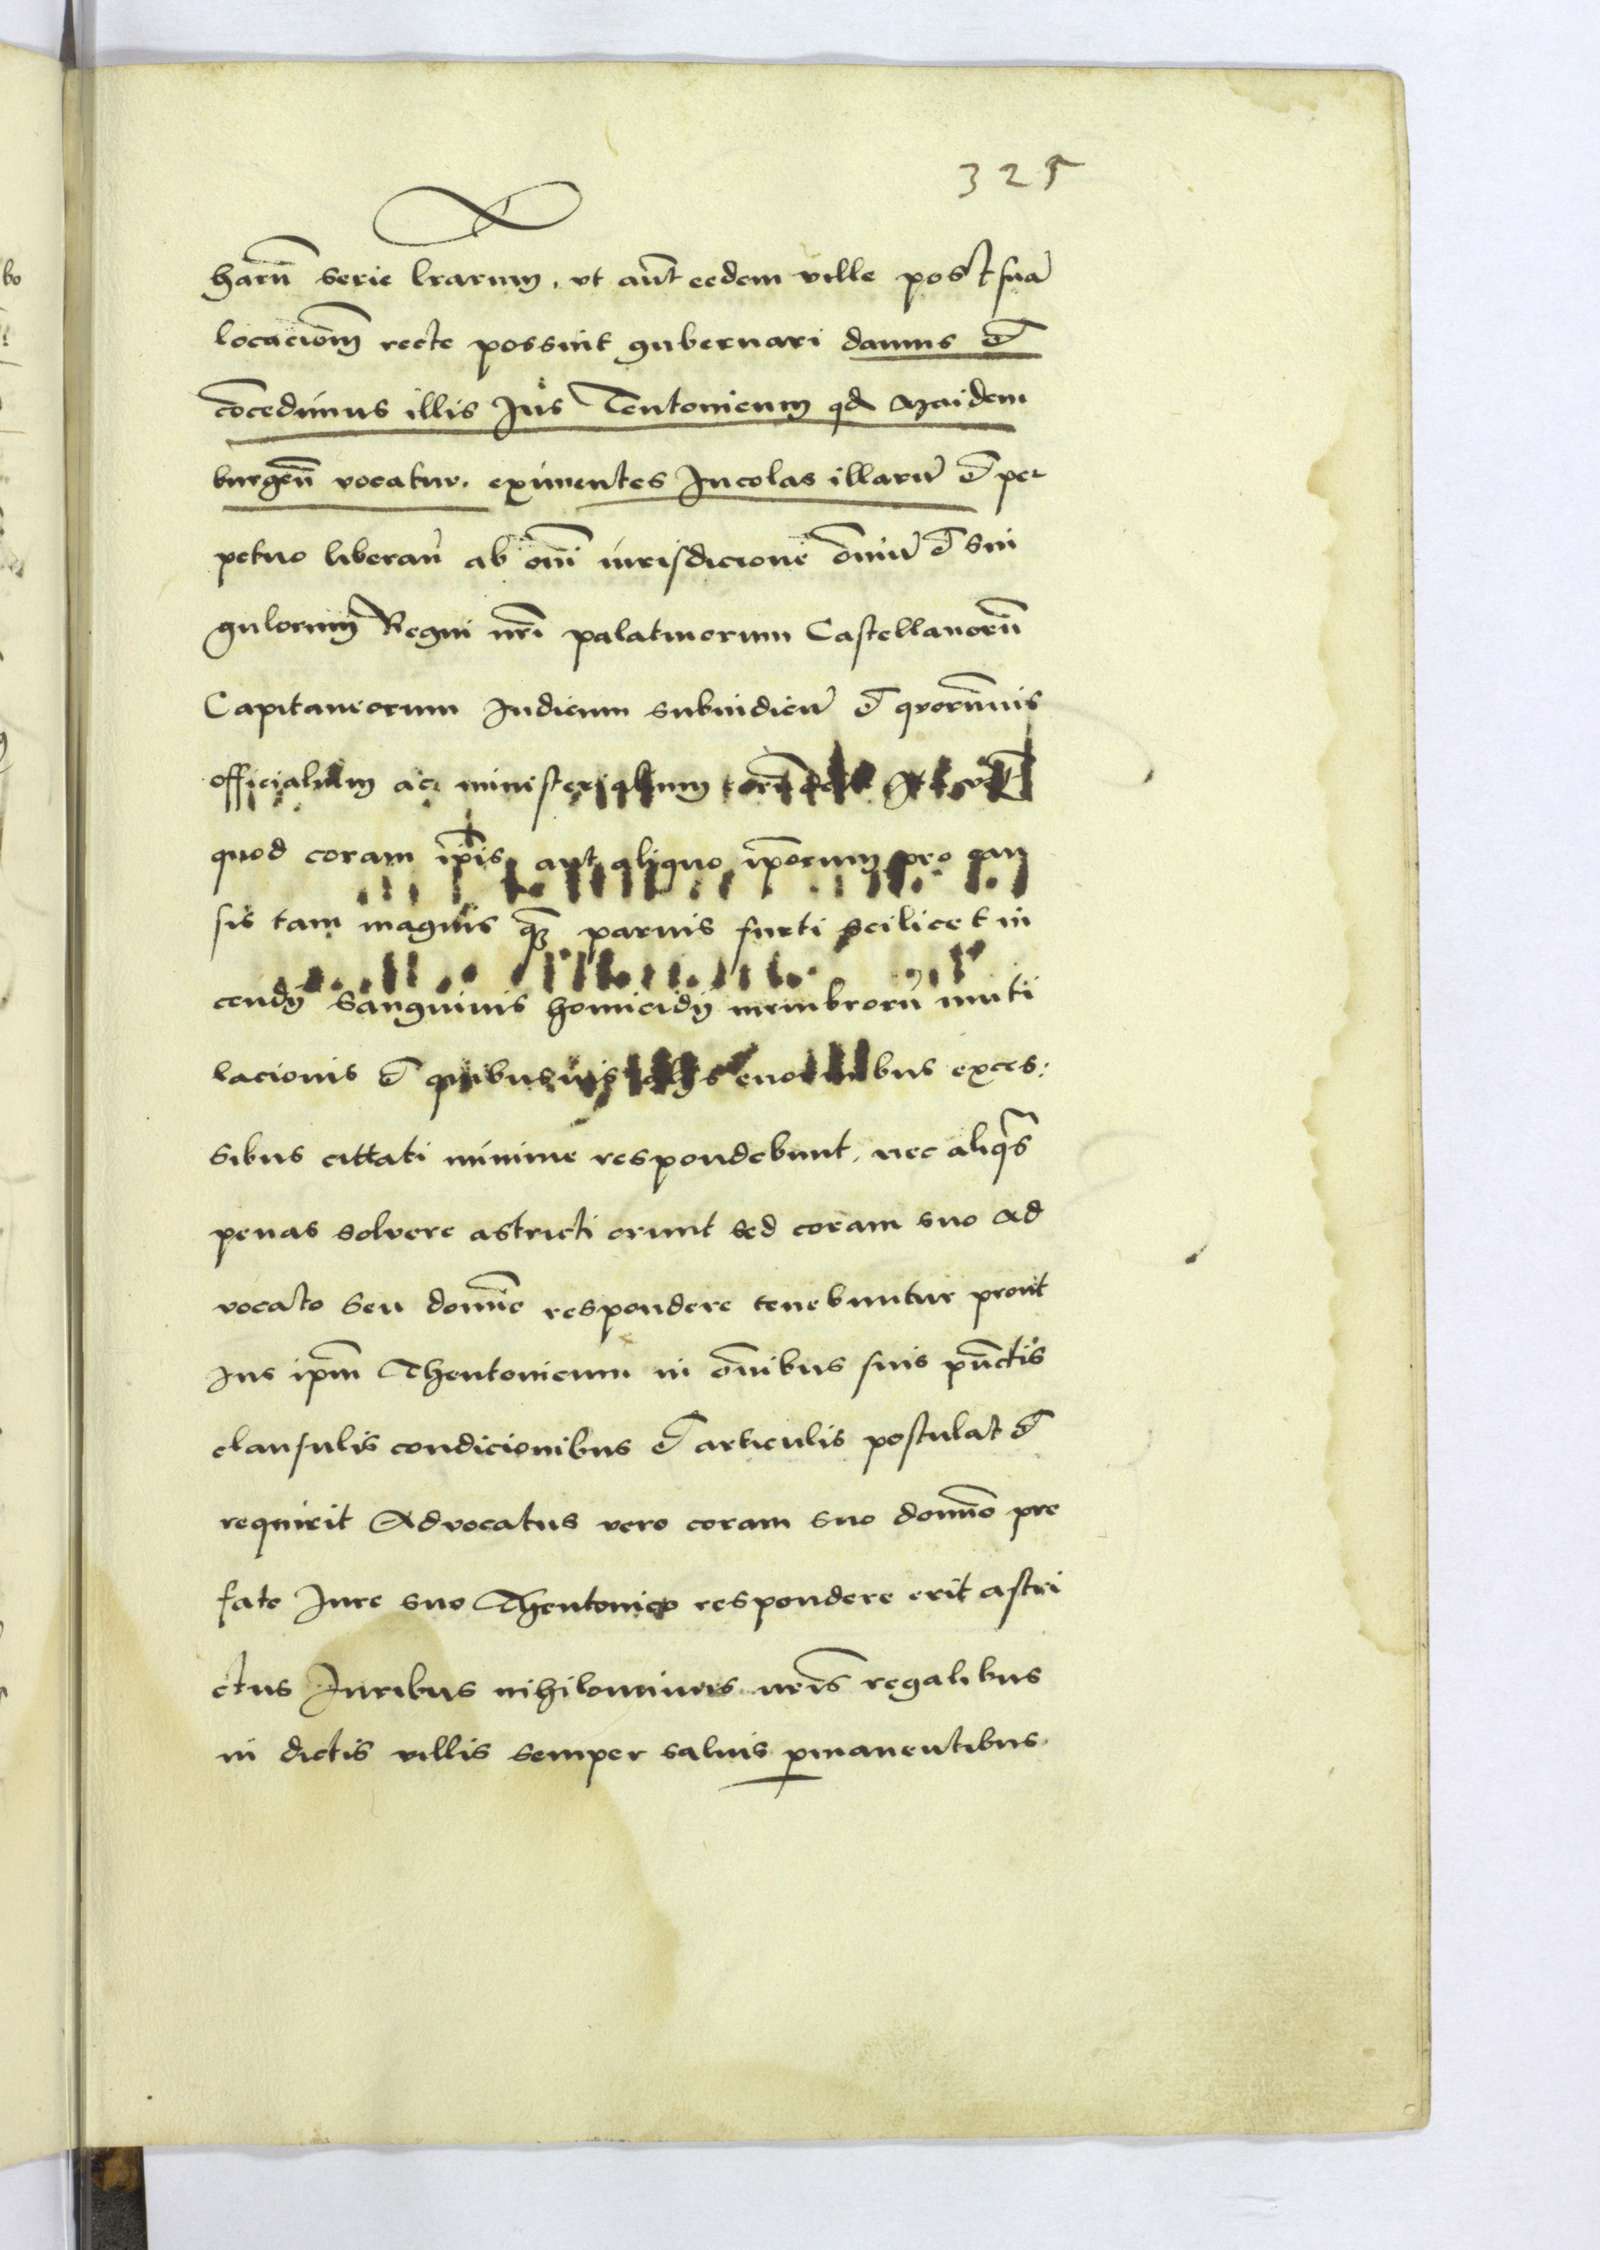 325
harū serie lrarum, ut aūt eedem ville post suā
locacionē recte possint gubernari damus et
cōcedimus illis Jus Teutonicum qd Maidem
burgeñ vocatur. eximentes Incolas illarū et per
petuo liberan̄ ab om̄i iurisdicione om̄iū et sin
gulorum Regni nr̄i palatinorum Castellanorū
Capitaneorum Judicum subiudicū et quorūuis
officialium ac ministerialium eorūdem Ita
quod coram ip̄is aut aliquo ip̄orum pro cau
sis tam magnis quā paruis furti scilicet in
cendij sanguinis homicidij membrorū muti
lacionis et quibusuis alijs enormibus exces:
sibus cittati minime respondebunt, nec aliqͣs
penas solvere astricti erunt sed coram suo ad
vocato seu domīo respondere tenebuntur prout
Jus ip̄m Theutonicum in om̄ibus suis pūctis
clausulis condicionibus et articulis postulat et
requirit Advocatus vero coram suo domīo pre
fato Jure suo Theutonico respondere erit astri
ctus Juribus nihilominus nr̄is regalibus
in dictis villis semper saluis ꝑmanentibus.